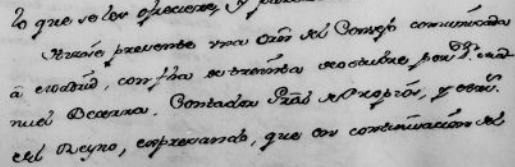 lo que se les ofreciere, y
presente una orn del Consejo comunicada
á con fha de treinta de octubre por Dn. Ma
nuel Becerra, Contador Gral de Propios, y
del Reyno, expresando, que con continuacion del